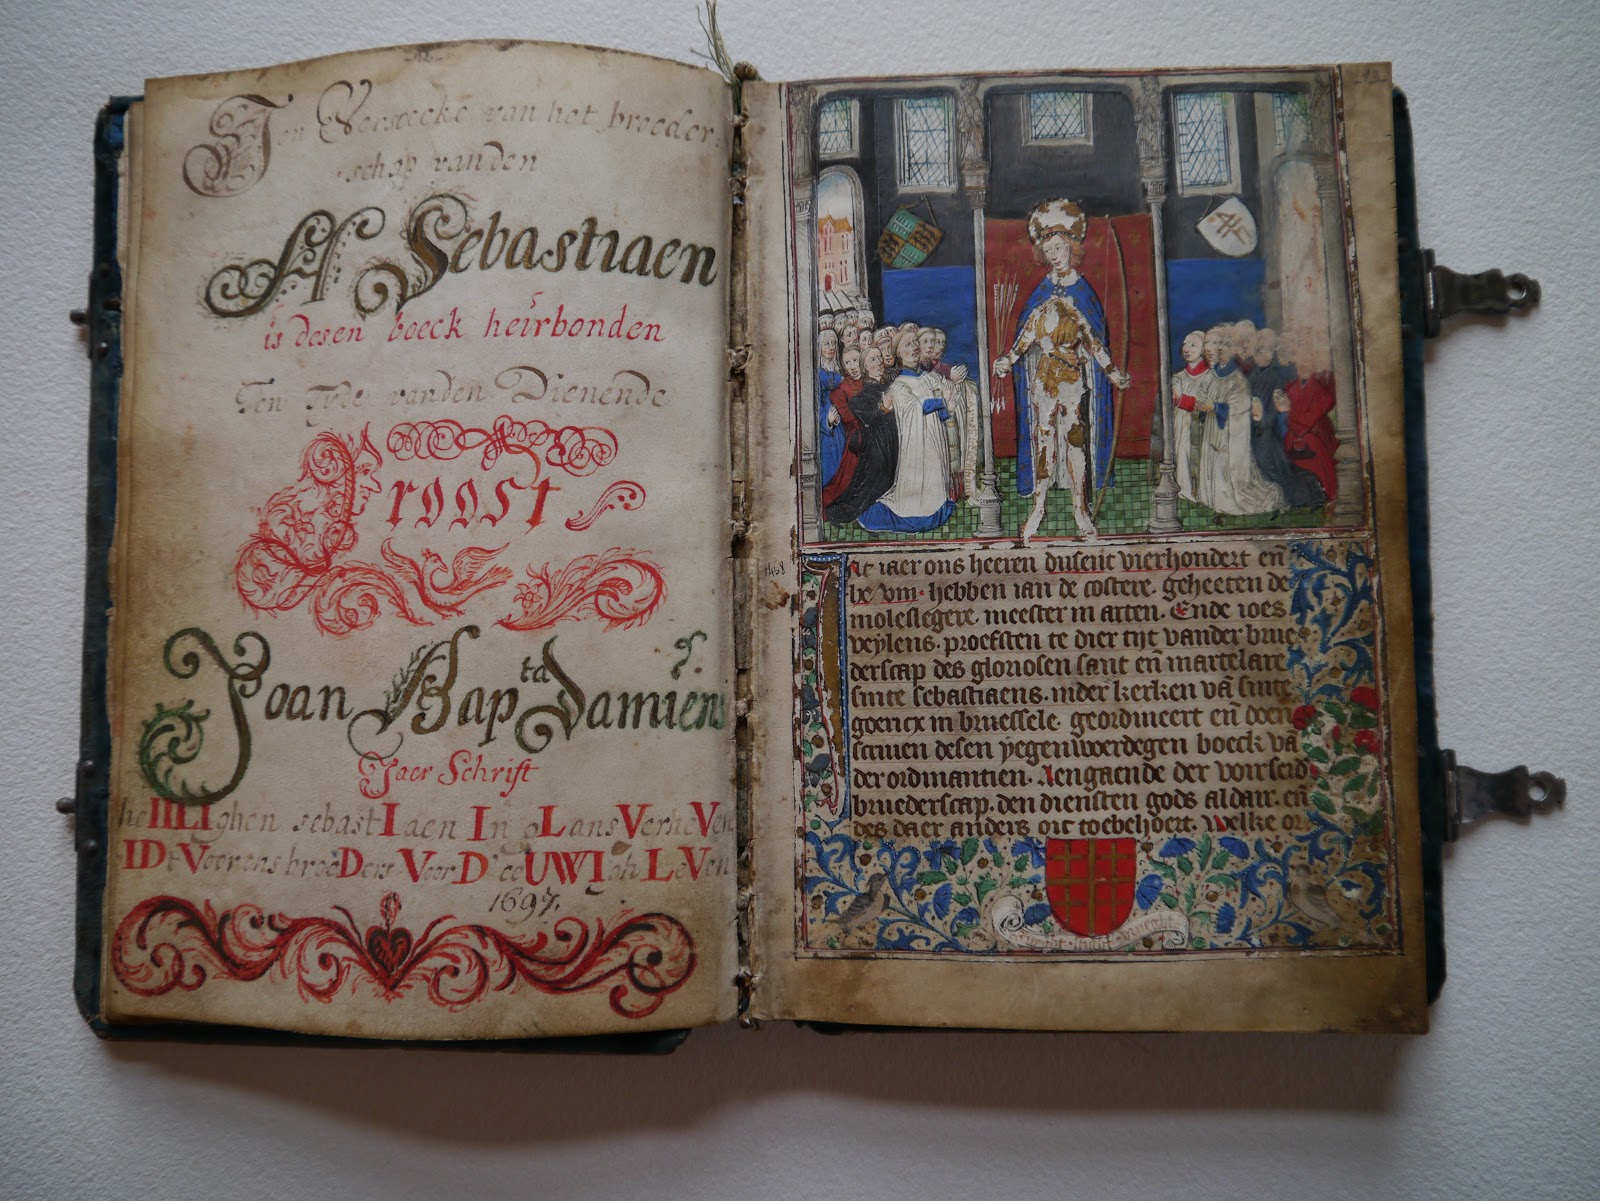 Ten Versoecke van het broeder-
schap van den
H Sebastiaen
is desen boeck heirbonden
Ten Tyde van den Dienende
Proost
Joan Bap^ta Damiens
Jaer Schrift
he ILIghen sebastIaen In gLans VerheVen
IDt Voor ons broeDers Voor D'eeUWIgh LeVen
1697.
1458
At iaer ons heeren dusent vierhondert en̄
lxe viii hebben ian de costere. geheeten de
moleslegere. meester in arten. Ende ioes
veylens. proefsten te dier tijt vander brue
derscap des gloriosen sant en̄ martelare
sinte sebastiaens. inder kerken vā sinte
goencx in bruessele. geordineert en̄ doen
scriuen desen yegenwoerdegen boeck vā
der ordinantien. Aengaende der voirseid
bruederscap. den diensten gods aldair. en̄
des daer anders oic toebehoert. Welke or